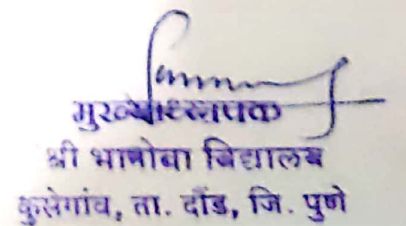 मुख्याध्यापक
श्री भानोबा विद्यालय
कुसेगांव, ता. दौंड, जि. पुणे